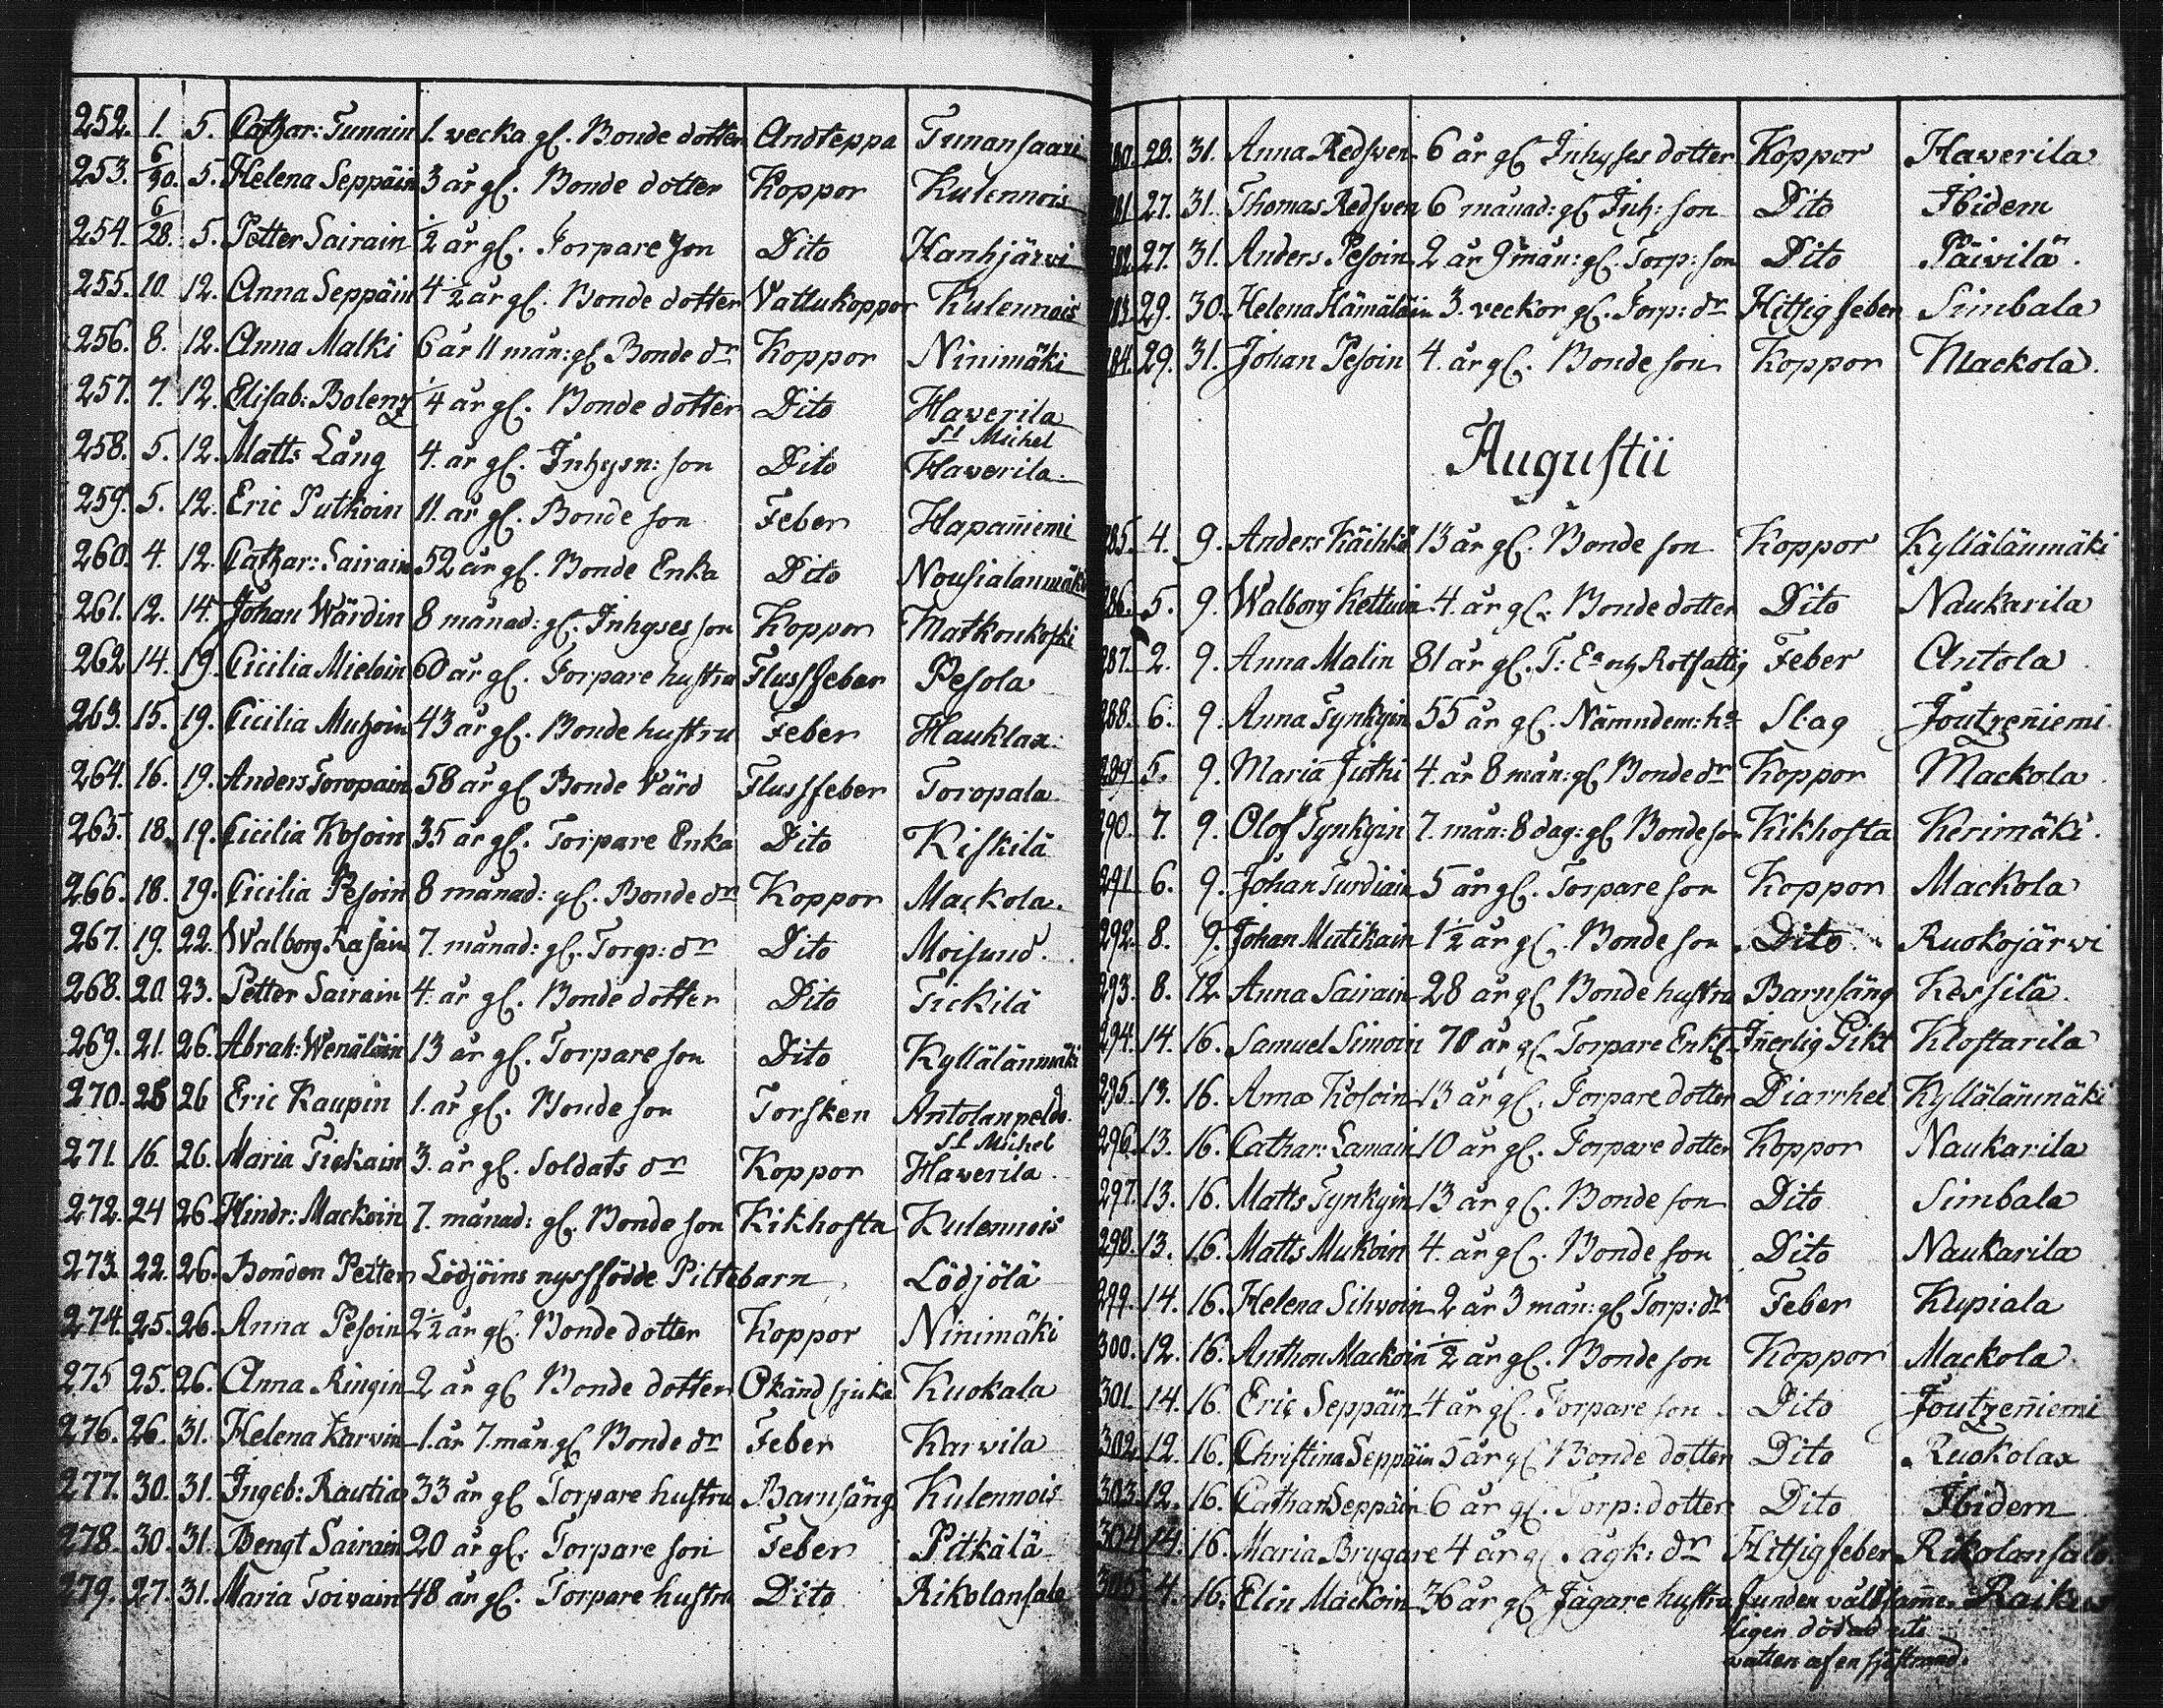 252. 1. 5. Cathar: Tunain 1. vecka gl. Bonde dotter Andteppa Tunansaari
253. 6/30. 5. Helena Seppäin 3 år gl. Bonde dotter Koppor Kulennois
254. 6/28. 5. Petter Sairain ½ år gl. Torpare son Dito Hanhjärvi
255. 10 12. Anna Seppäin 4½ år gl. Bonde dotter Vattukoppor Kulennois
256. 8. 12. Anna Malki 6 år 11 mån: gl Bonde dr Koppor Ninimäki
257. 7. 12. Elisab: Bolenz ¼ år gl. Bonde dotter Dito Hawerila
258. 5. 12. Matts Lång 4. år gl. Inhysn: son Dito St Michel Hawerila
259. 5. 12. Eric Putkoin 11. år gl. Bonde son Feber Hapañiemi
260. 4. 12. Cathar: Sairain 52 år gl. Bonde Enka Dito Nousialanmäki
261. 12. 14. Johan Wärdin 8 månad: gl. Inhyses son Koppor Matkonkoski
262 14. 19. Cicilia Mieloin 60 år gl. Torpare hustru Flussfeber Pesola
263. 15. 19. Cicilia Muhoin 43 år gl. Bonde hustru Feber Hauklax.
264. 16. 19. Anders Toropain 58 år gl Bonde Värd Flussfeber Toropala
265. 18. 19. Cicilia Kosoin 35 år gl. Torpare Enka Dito Kiskilä
266. 18. 19. Cicilia Pesoin 8 månad: gl. Bonde dr Koppor Mackola.
267. 19. 22. Walborg Kasain 7. månad: gl. Torp: dr Dito Moisund.
268. 20 23. Petter Sairain 4. år gl. Bonde dotter Dito Tickilä
269. 21. 26. Abrah: Wenäläin 13 år gl. Torpare son Dito Kyllälänmäki
270. 26 26 Eric Kaupin 1. år gl. Bonde son Torsken Antolanpeldo.
271. 16. 26. Maria Tickain 3. år gl. Soldats dr Koppor St Michel Hawerila
272. 24 26. Hindr: Mackoin 7. månad: gl. Bonde son Kikhosta Kulennois
273. 22. 26. Bonden Petter Lödjöins nyssfödde Piltebarn Lödjölä
274. 25. 26. Anna Pesoin 2½ år gl. Bonde dotter Koppor Ninimäki
275 25. 26. Anna Ringin 2 år gl Bonde dotter Okänd sjuka Kuokala
276. 26. 31. Helena Karvin 1. år 7. mån gl Bonde dr Feber Karvila
277. 30. 31. Ingeb: Rautia 33 år gl Torpare hustru Barnsäng Kulennois
278. 30. 31. Bengt Sairain 20 år gl. Torpare son Feber Pitkälä
279. 27. 31. Maria Toivain 48 år gl. Torpare hustru Dito Rikolansalo
280. 23. 31. Anna Redsven 6 år gl Inhyses dotter Koppor Hawerila
281 27. 31. Thomas Redsven 6 månad: gl Inh: son Dito Ibidem
282 27. 31. Anders Pesoin 2 år 9 mån: gl. Torp: son Dito Päivilä.
283. 29. 30. Helena Hämäläin 3. veckor gl. Torp: dr Hitsig feber Simbala
284. 29. 31. Johan Pesoin 4. år gl. Bonde son Koppor Mackola.
Augustii
285. 4. 9. Anders Käihkä 13 år gl. Bonde son Koppor Kyllälänmäki
286. 5. 9. Walborg Kettuin 4. år gl. Bonde dotter Dito Naukarila
287. 2. 9. Anna Malin 81 år gl. T: Ea och Rotfattig Feber Antola
288. 6. 9. Anna Tynkyin 55 år gl. Nämndem: ha Slag Joutzeñiemi
289 5. 9. Maria Jutki 4. år 8 mån: gl Bonde dr Koppor Mackola
290. 7. 9. Olof Tynkyin 7. mån: 8 dag: gl Bonde son Kikhosta Kerimäki.
291. 6. 9. Johan Turdiain 5 år gl. Torpare son Koppor Mackola
292. 8. 9. Johan Mutikain 1½ år gl. Bonde son Dito Ruokojärvi
293. 8. 12 Anna Sairain 28 år gl Bonde hustru Barnsäng Kessilä.
294. 14. 16. Samuel Simoin 70 år gl. Torpare Enkl. Iñerlig Gikt Klostarila
295. 13. 16. Anna Kosoin 13 år gl. Torpare dotter Diarrhei Kyllälänmäki
296. 13. 16. Cathar: Lamain 10 år gl. Torpare dotter Koppor Naukarila
297. 13. 16. Matts Tynkyin 13 år gl. Bonde son Dito Simbala
298. 13. 16. Matts Mukoin 4. år gl. Bonde son Dito Naukarila
299. 14. 16. Helena Silvoin 2 år 3 mån: gl Torp: dr Feber Kupiala
300. 12. 16. Anthon Mackoin ½ år gl. Bonde son Koppor Mackola.
301. 14. 16. Eric Seppäin 4 år gl. Torpare son Dito Joutzeñiemi
302. 12. 16. Christina Seppäin 5 år gl Bonde dotter Dito Ruokolax
303. 12. 16. Cathar Seppäin 6 år gl. Torp: dotter Dito Ibidem
304 14. 16. Maria Brygare 4 år gl dr Hitsig feber Rikolansalo
305 4. 16. Elin Mackoin 36 år gl Jägare hustru funden våldsame-
ligen dödad uti
watten af en sjöstrand.